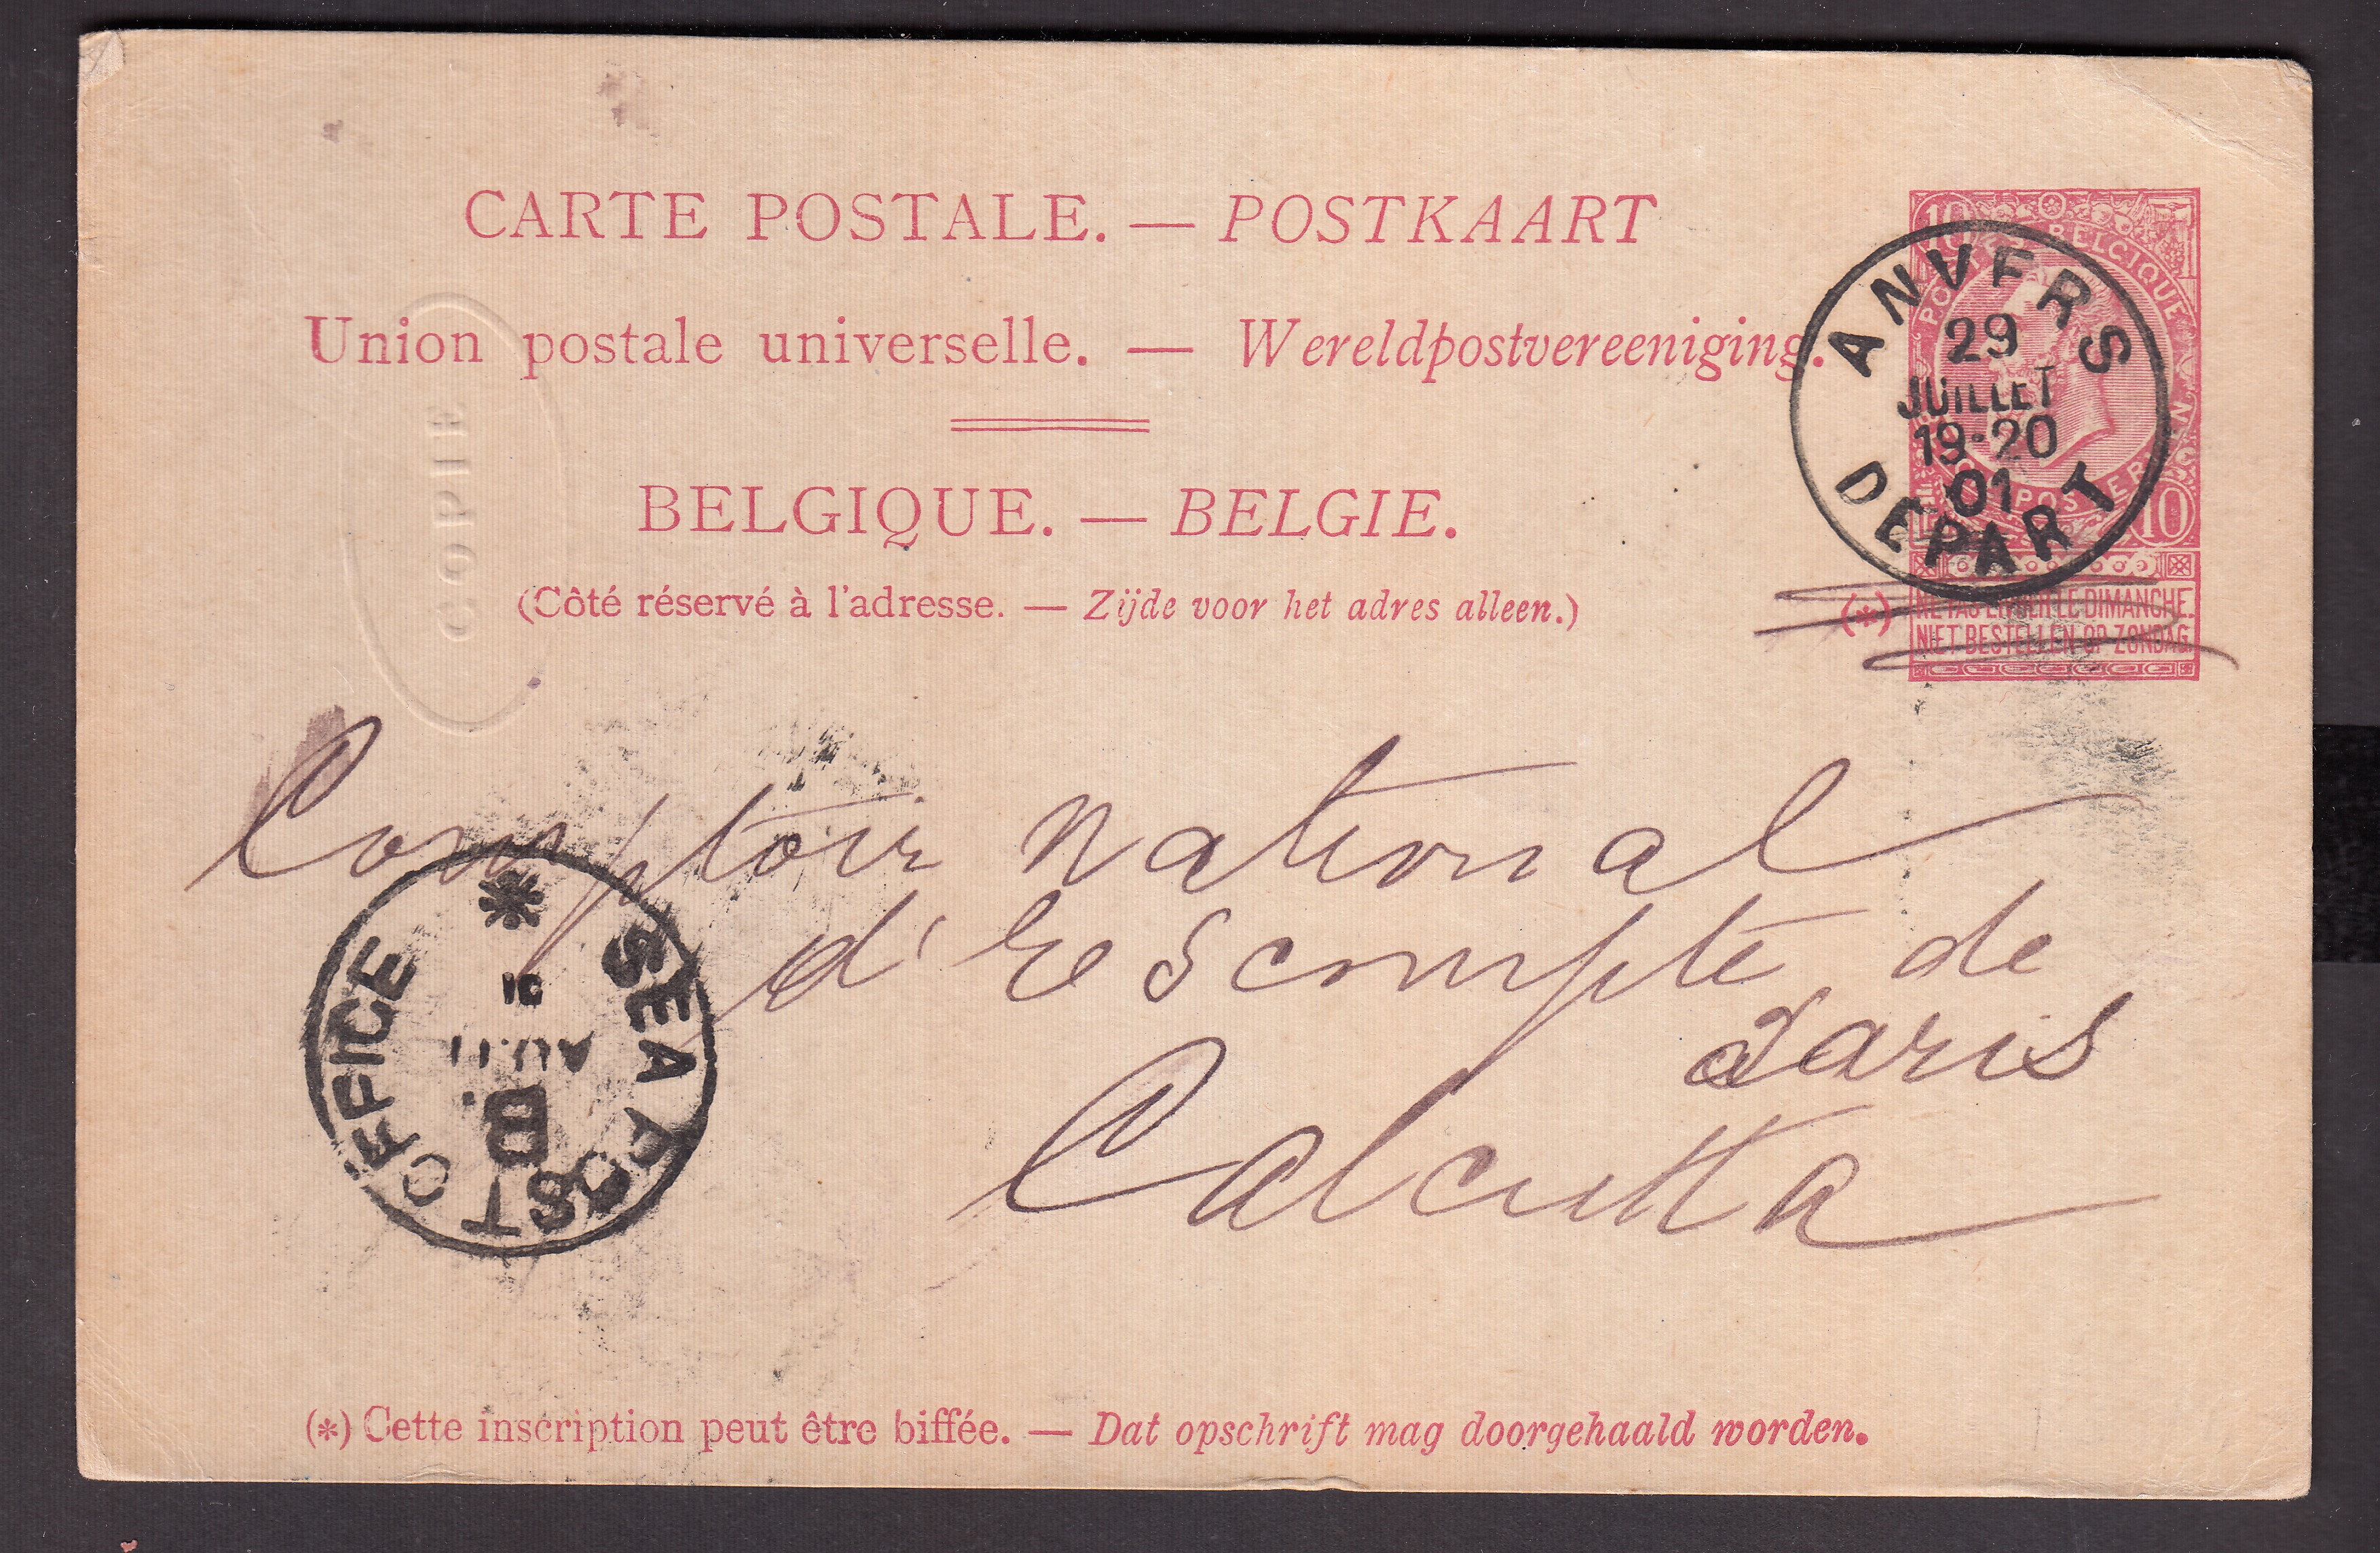 CARTE POSTALE. — POSTKAART
Union postale universelle. — Wereldpostvereeniging.
BELGIQUE. — BELGIE.
(Côté réservé à l'adresse. — Zijde voor het adres alleen.)
COPIE
10 POSTES BELGIQUE
10
ANVERS
29
JUILLET
19-20
01
DEPART
(*) NE PAS LIVRER LE DIMANCHE.
NIET BESTELLEN OP ZONDAG.
Comptoir National
d'Escompte de
Paris
Calcutta
SEA POST OFFICE
B
AU 11
01
(*) Cette inscription peut être biffée. — Dat opschrift mag doorgehaald worden.